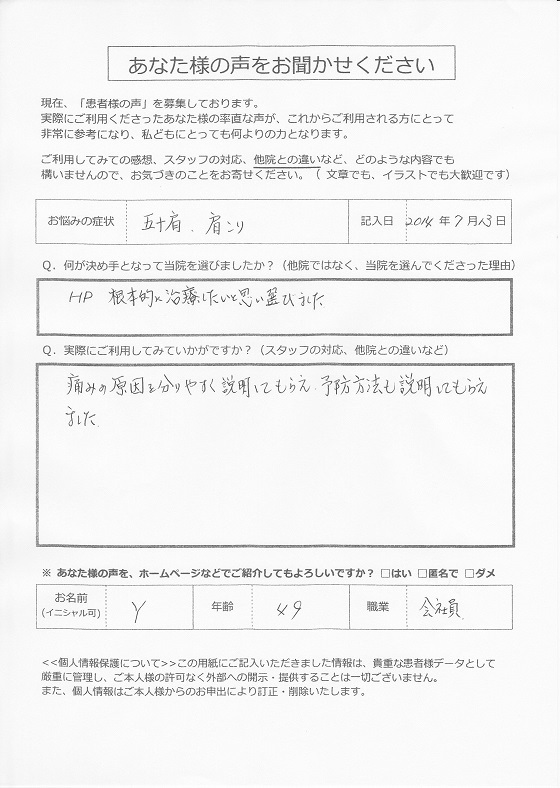 あなた様の声をお聞かせください
現在、「患者様の声」を募集しております。
実際にご利用くださったあなた様の率直な声が、これからご利用される方にとって
非常に参考になり、私どもにとっても何よりの力となります。
ご利用してみての感想、スタッフの対応、他院との違いなど、どのような内容でも
構いませんので、お気づきのことをお寄せください。（ 文章でも、イラストでも大歓迎です）
お悩みの症状 五十肩．肩こり 記入日 2014年7月13日
Q．何が決め手となって当院を選びましたか？（他院ではなく、当院を選んでくださった理由）
HP 根本的に治療したいと思い選びました
Q．実際にご利用してみていかがですか？（スタッフの対応、他院との違いなど）
痛みの原因を分りやすく説明してもらえ．予防方法も説明してもらえ
ました
※ あなた様の声を、ホームページなどでご紹介してもよろしいですか？ □はい □匿名で □ダメ
お名前 Y 年齢 49 職業 会社員
(イニシャル可)
<<個人情報保護について>>この用紙にご記入いただきました情報は、貴重な患者様データとして
厳重に管理し、ご本人様の許可なく外部への開示・提供することは一切ございません。
また、個人情報はご本人様からのお申出により訂正・削除いたします。